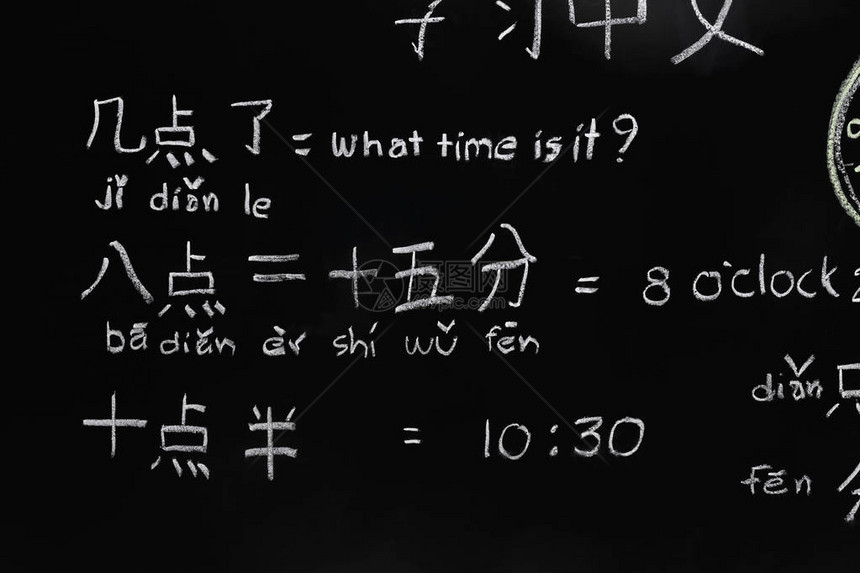 学习中文
几点了 = what time is it?
jǐ diǎn le
八点二十五分 = 8 o'clock
bā diǎn èr shí wǔ fēn
diǎn 点
十点半 = 10:30
fēn 分